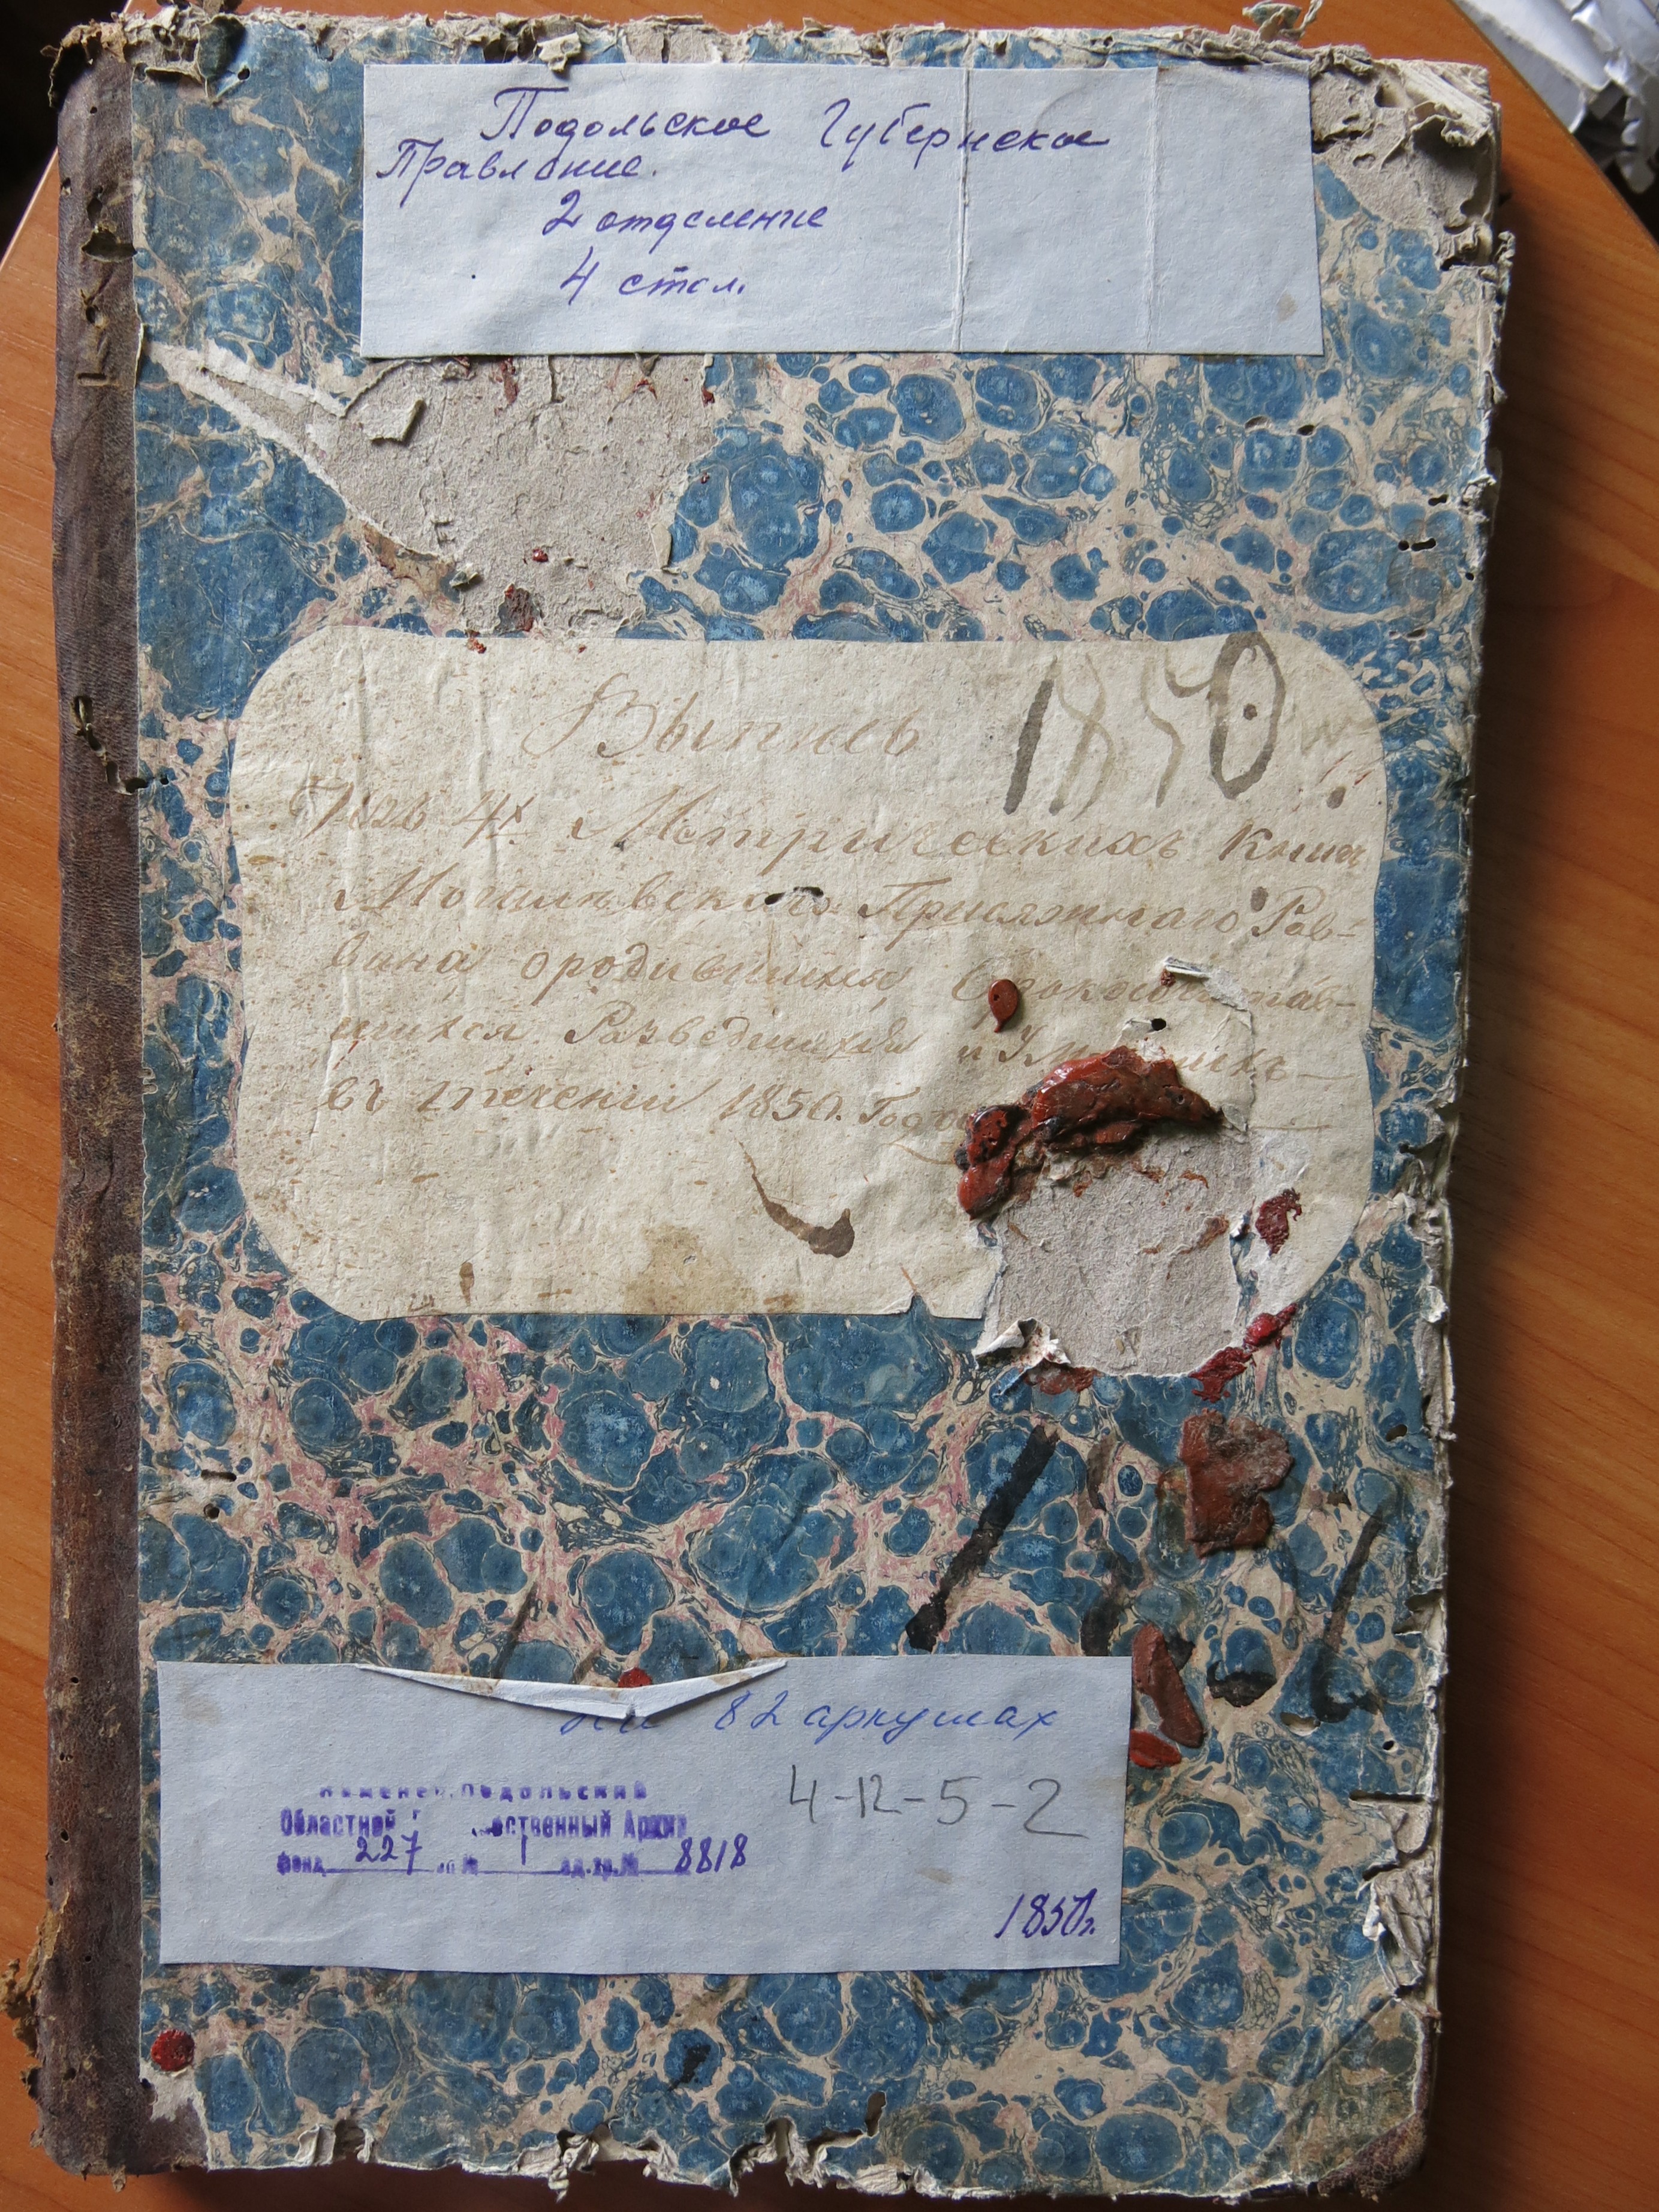 Подольское Губернское
Правление.
2 отделение
4 стол.
1850
Выпись
Изъ 4х Метрическихъ Книгъ
Могилевского Присяжнаго Рав-
вина о родившихся, Бракосочетав-
шихся Разведшихся и
въ течении 1850. Года
на 82 аркушах
4-12-5-2
Каменец-Подольский
Областной Архив
Фонд 227 оп № 1 ед.хр.№ 8818
1850г.